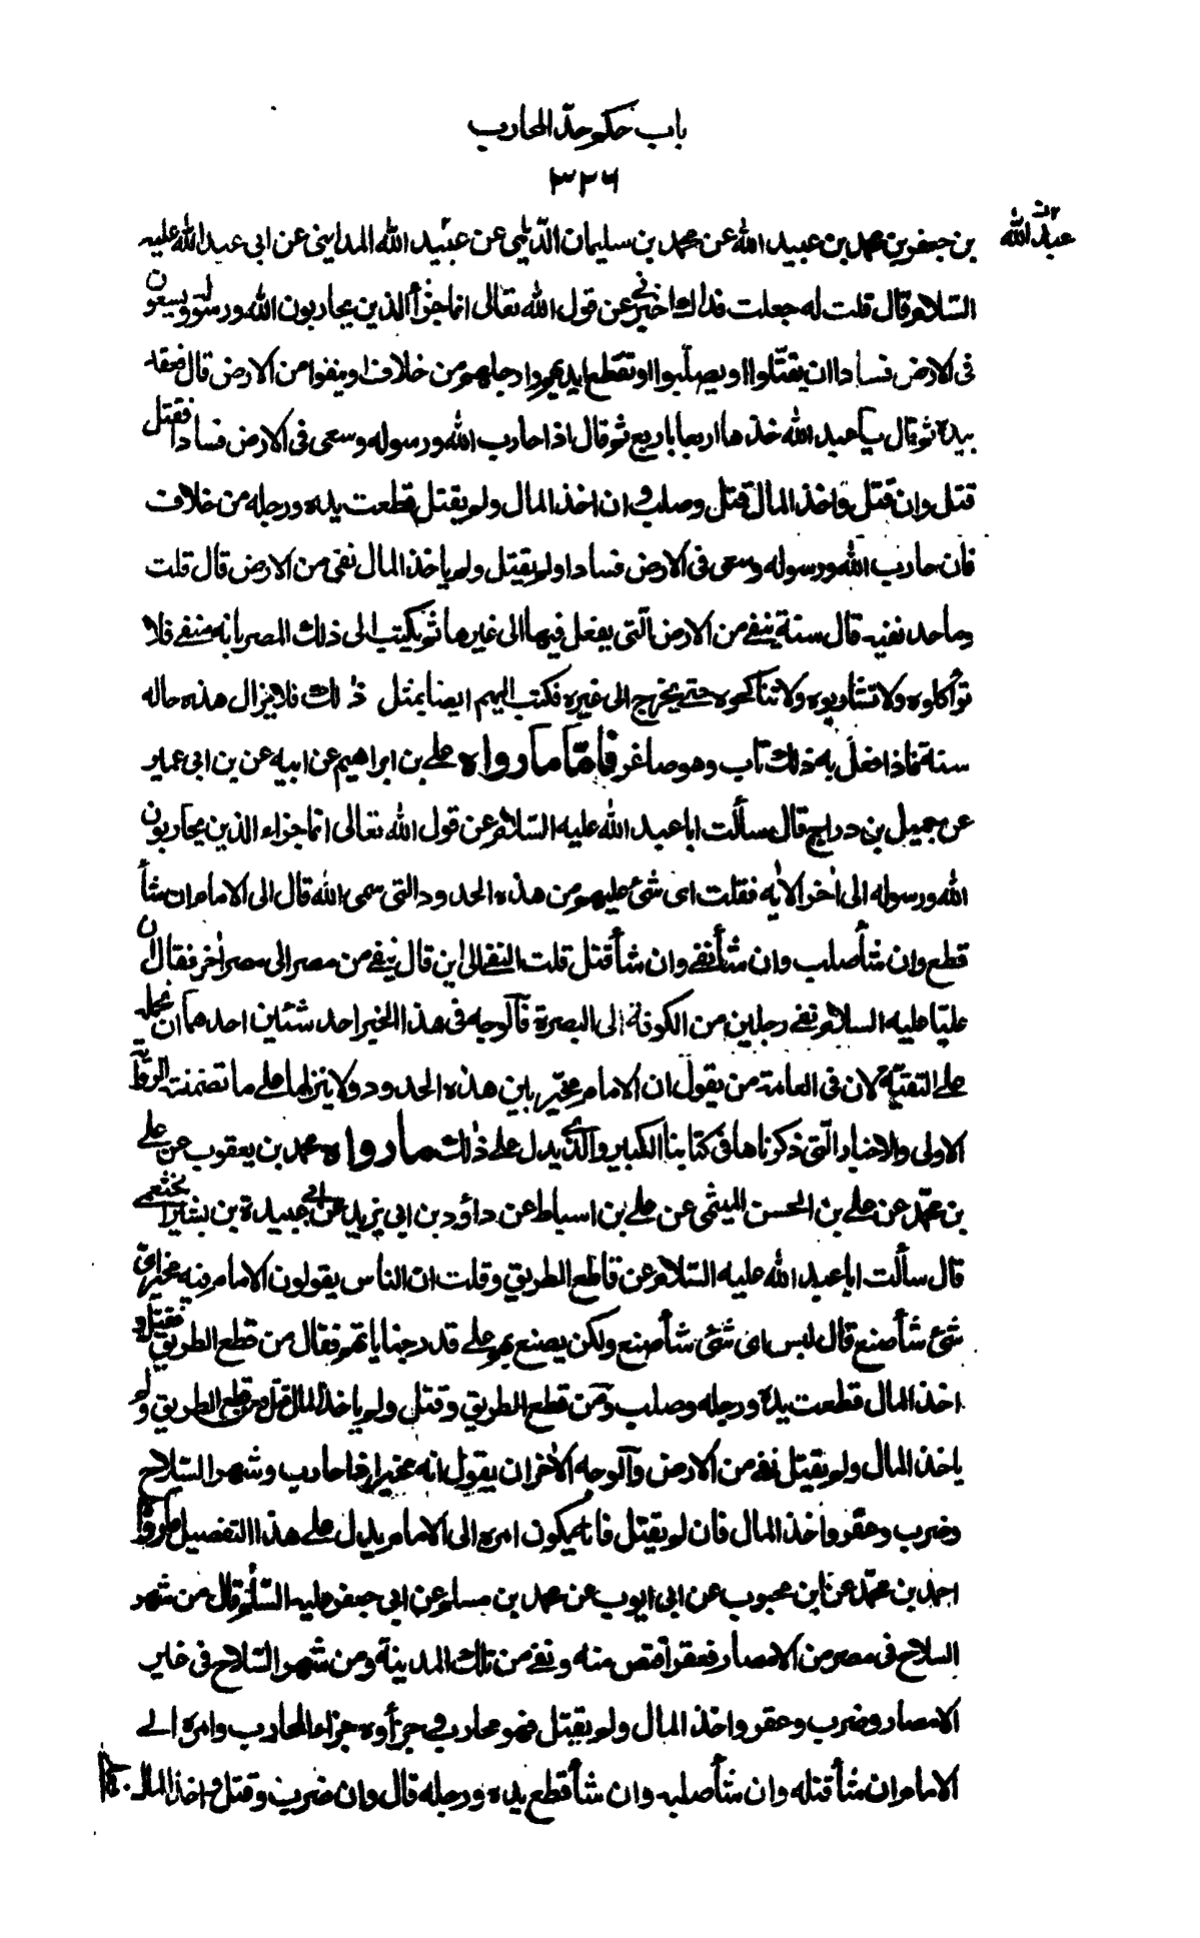 باب حكم حدّ المحارب
٣٢٦
عبد الله
بن جعفر بن محمد بن عبيد الله عن محمد بن سليمان الدّيلمي عن عبيد الله المدايني عن ابى عبد الله عليه
السّلام قال قلت له جعلت فداك اخبرني عن قول الله تعالى انما جزأ الذين يحاربون الله ورسوله ويسعون
فى الارض فسادا ان يقتّلوا او يصلّبوا او تقطّع ايديهم وارجلهم من خلاف او ينفوا من الارض قال فعقد
بيده ثم قال يا عبد الله خذها اربعا باربع ثم قال اذا حارب الله ورسوله وسعى فى الارض فسادا فقتل
قتل وان قتل واخذ المال قتل وصلب وان اخذ المال ولم يقتل قطعت يده ورجله من خلاف
فان حارب الله ورسوله وسعى فى الارض فسادا ولم يقتل ولم ياخذ المال نفى من الارض قال قلت
وما حد نفيه قال سنة ينفے من الارض الّتى يفعل فيها الى غيرها ثم يكتب الى ذلك المصر بانه منفے فلا
تؤاكلوه ولا تشاربوه ولا تناكحوه حتے يخرج الى غيره فكتب اليهم ايضا بمثل ذلك فلا يزال هذه حاله
سنة فاذا فعل به ذلك تاب وهو صاغر فامّا ما رواه علے بن ابراهيم عن ابيه عن بن ابى عمير
عن جميل بن دراج قال سألت ابا عبد الله عليه السّلام عن قول الله تعالى انما جزاء الذين يحاربون
الله ورسوله الى اخر الايه فقلت اى شئ عليهم من هذه الحدود التى سمى الله قال الى الامام ان شأ
قطع وان شأ صلب وان شأ نفے وان شأ قتل قلت النفے الى اين قال ينفے من مصر الى مصر اخر فقال ان
عليّا عليه السلام نفے رجلين من الكوفة الى البصرة فالوجه فى هذا الخبر احد شئين احدهما ان نحمله
علے التقيّة لان فى العامة من يقول ان الامام مخيّر بين هذه الحدود ولا ينزلها علے ما تضمنته الرواية
الاولى والاخبار الّتى ذكرناها فى كتابنا الكبير والّذى يدل علے ذلك ما رواه محمد بن يعقوب عن علے
بن محمّد عن علے بن الحسن الميثمى عن علے بن اسباط عن داؤد بن ابى يزيد عن ابى عبيدة بن بشير الخثعمے
قال سألت ابا عبد الله عليه السّلام عن قاطع الطريق وقلت ان الناس يقولون الامام فيه مخير اىّ
شئ شأ صنع قال ليس اى شئ شأ صنع ولكن يصنع بهم علے قدر جناياتهم فقال من قطع الطريق فقتل و
اخذ المال قطعت يده ورجله وصلب ومن قطع الطريق وقتل ولم ياخذ المال قتل ومن قطع الطريق ولم
ياخذ المال ولم يقتل نفے من الارض والوجه الاخر ان يقول انه مخير اذا حارب وشهر السّلاح
وضرب وعقر واخذ المال فان لم يقتل فانه يكون امره الى الامام يدل علے هذا التفصيل ما رواه
احمد بن محمّد عن ابن محبوب عن ابى ايوب عن محمد بن مسلم عن ابى جعفر عليه السّلم قال من شهر
السلاح فى مصر من الامصار فعقر اقتص منه ونفے من تلك المدينة ومن شهر السّلاح فى غير
الامصار وضرب وعقر واخذ المال ولم يقتل فهو محارب فجزأوه جزاء المحارب وامره الے
الامام ان شأ قتله وان شأ صلبه وان شأ قطع يده ورجله قال وان ضرب وقتل واخذ المال